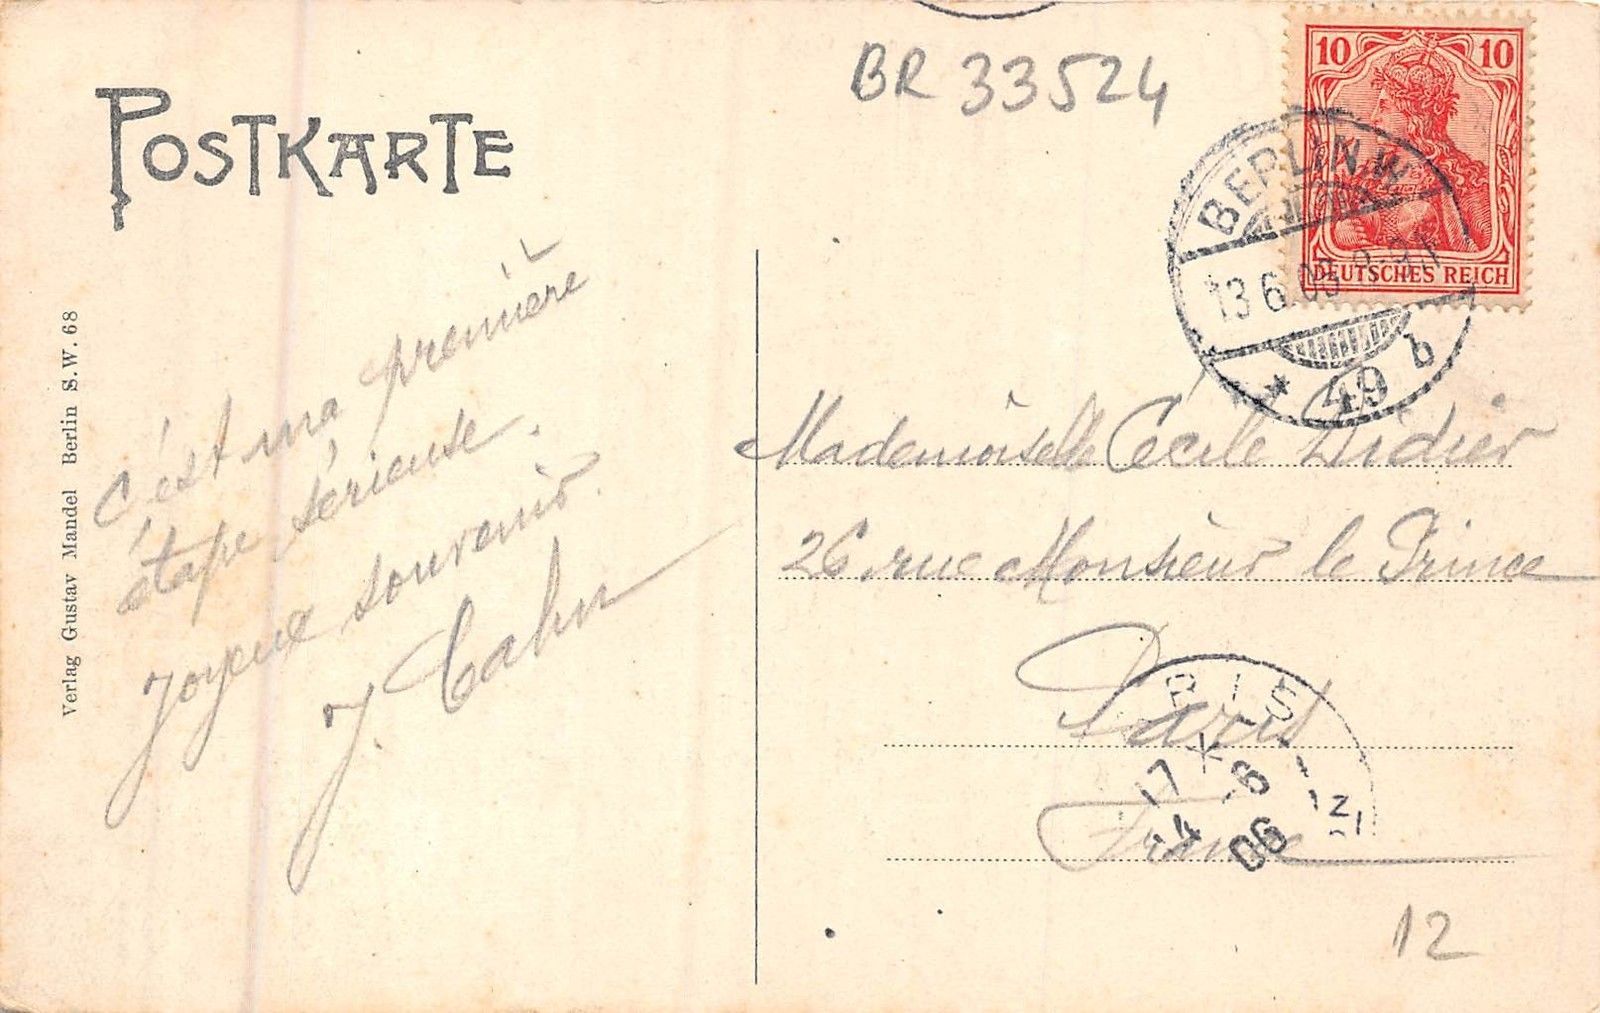 BR 33524
10 10
DEUTSCHES REICH
BERLIN.W
13 6
* 49 b
POSTKARTE
Verlag Gustav Mandel Berlin S.W. 68
C'est ma première
étape sérieuse.
Joyeux souvenir.
J. Cahn
Mademoiselle Cécile Didier
26 rue Monsieur le Prince
Paris
France
RIS
17
14 -6
06
12